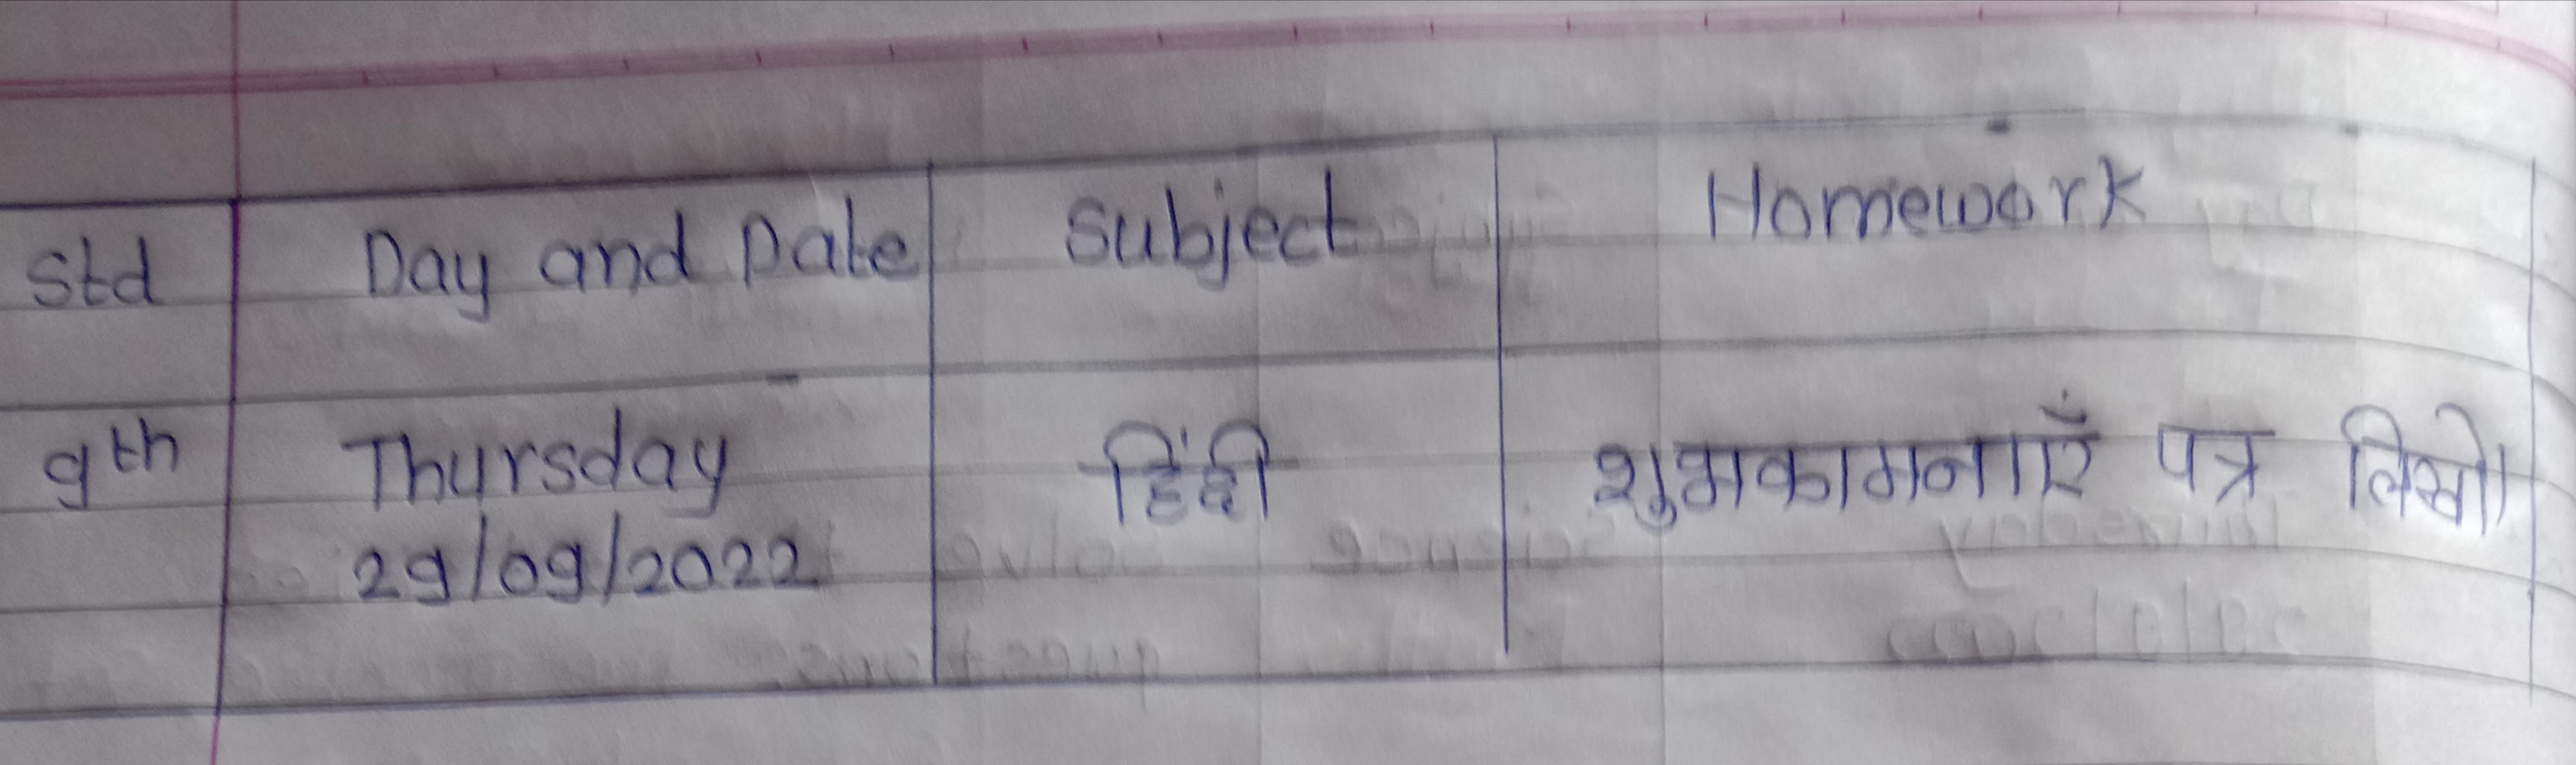 Std Day and Date Subject Homework
9th Thursday हिंदी शुभकामनाएँ पत्र लिखो।
29/09/2022